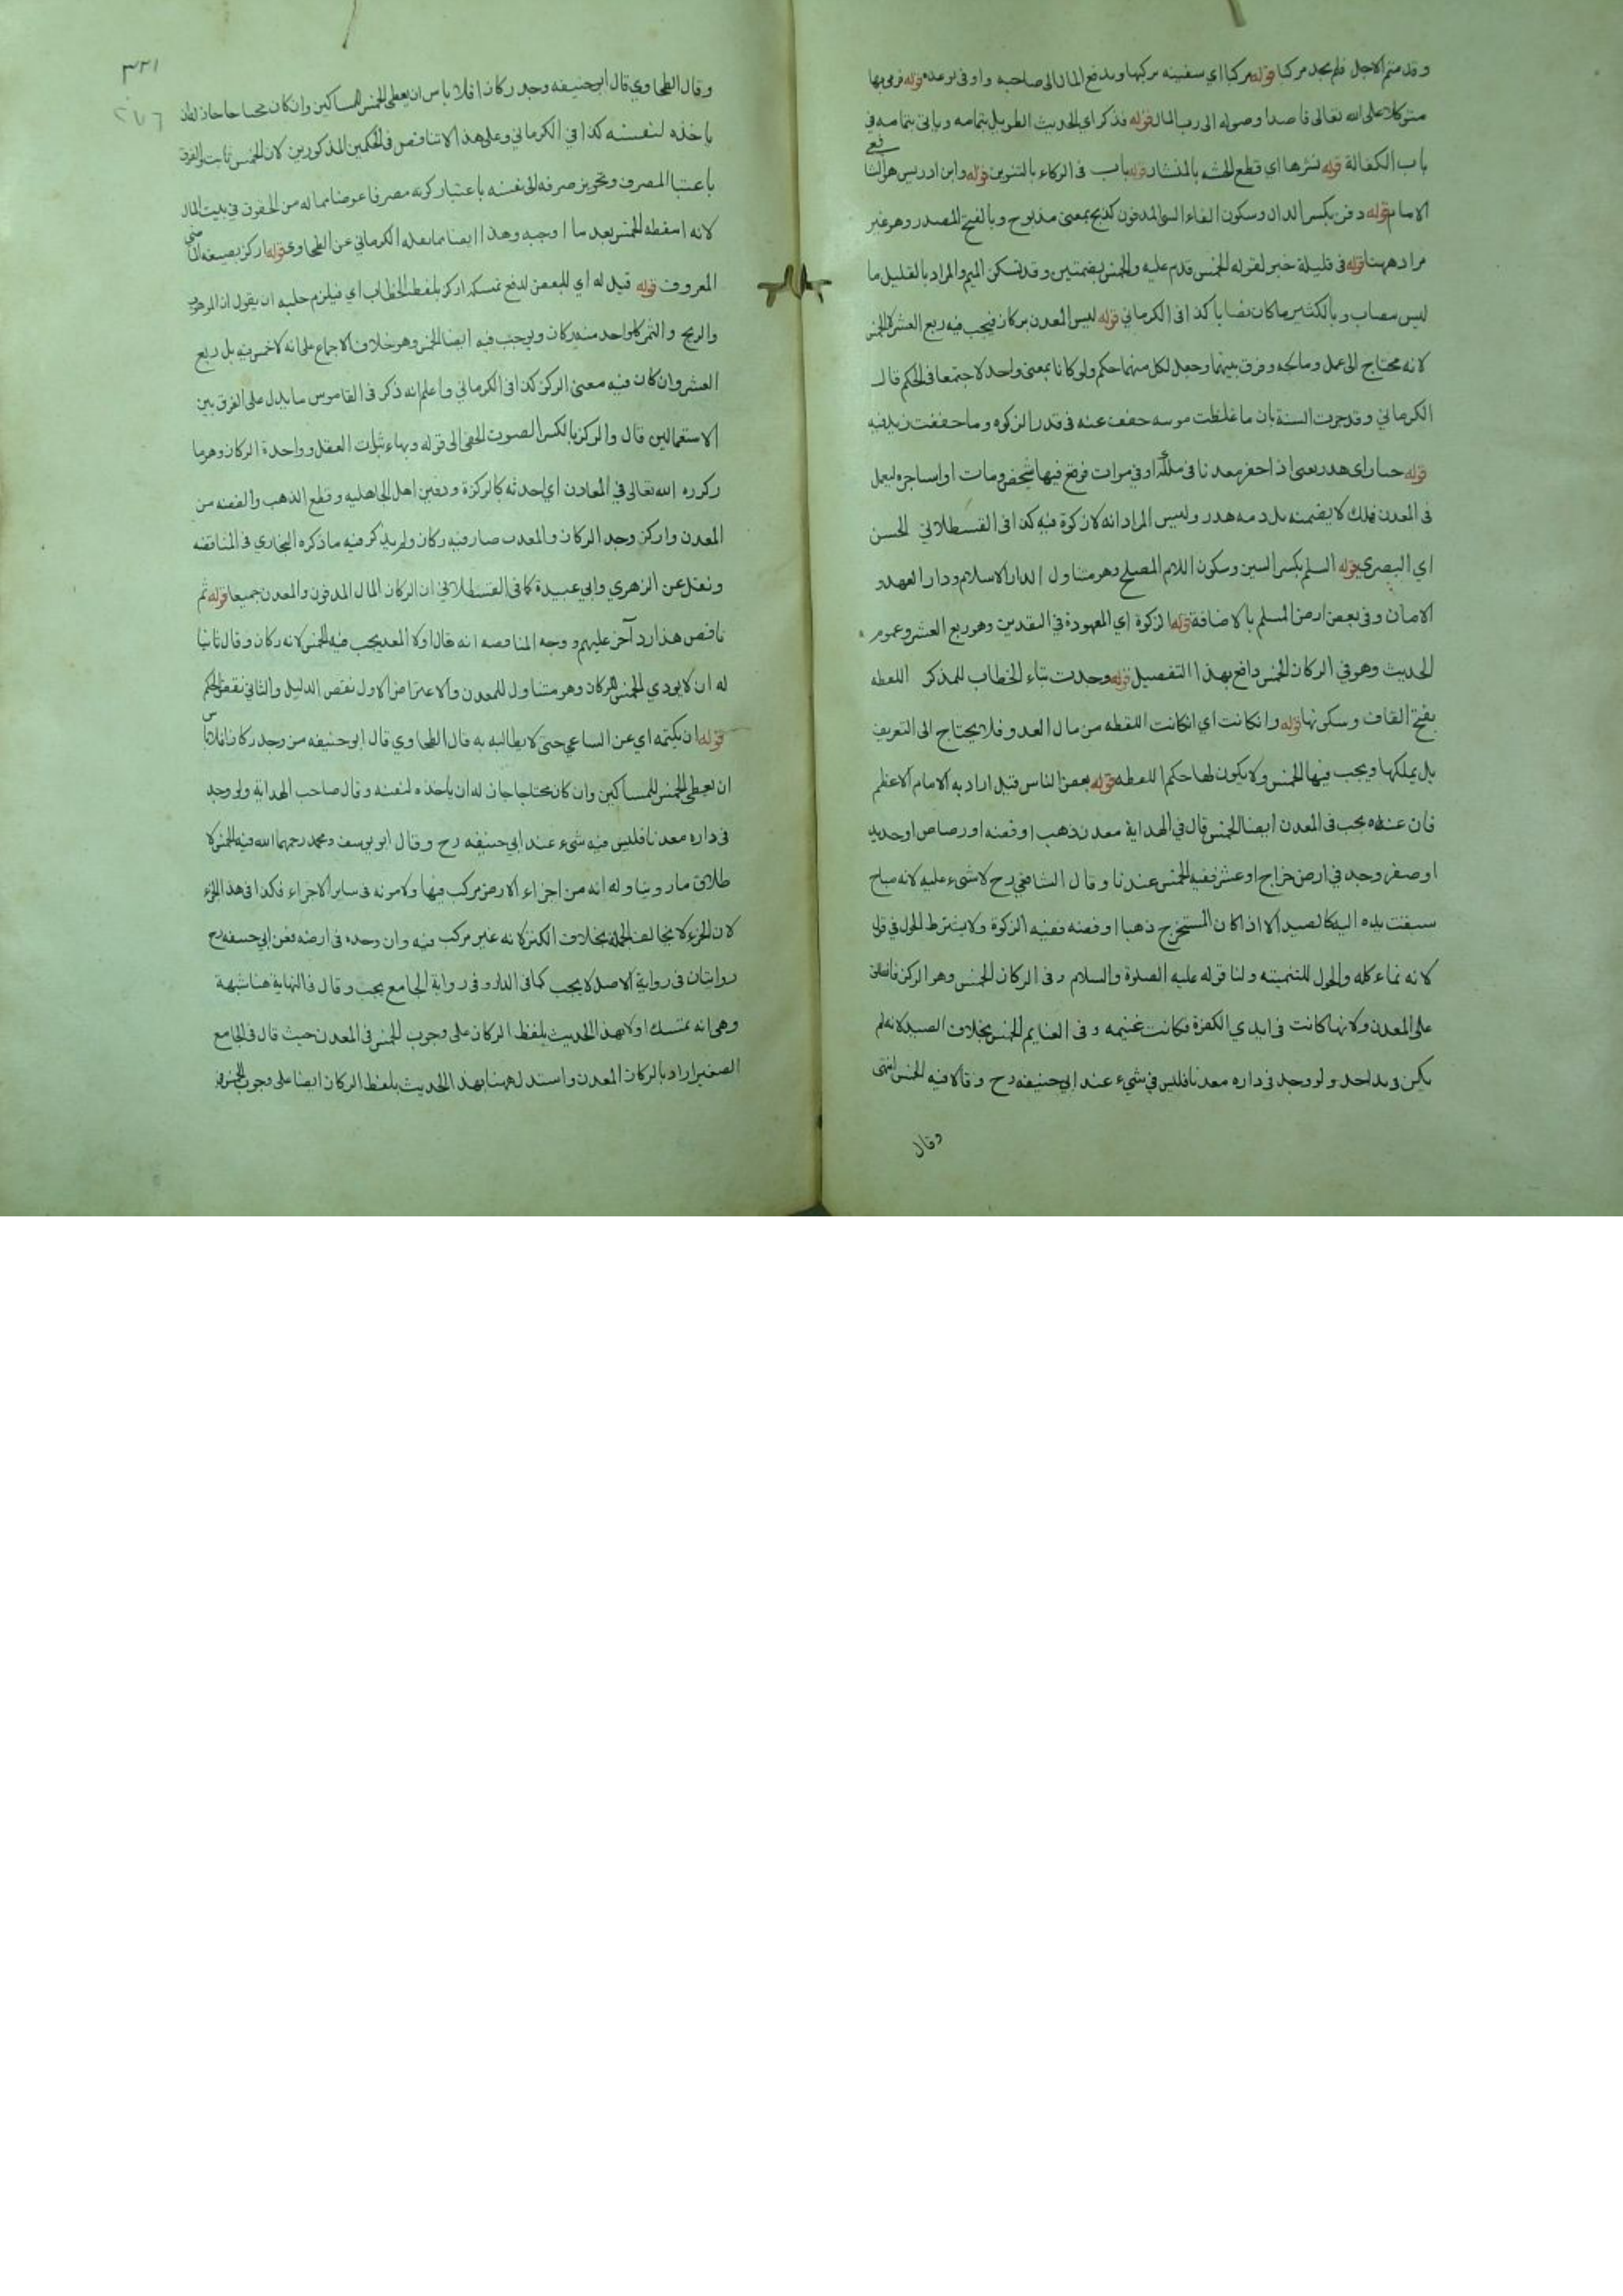 وقد متم الاجل فلم يجد مركبا قوله مركبا اي سفينه يركبها ويدفع المال الى صاحبه واوفى بوعده قوله فرمى بها
متوكلا على الله تعالى قاصدا وصوله الى رب المال قوله فذكر اي الحديث الطويل بتمامه وياتى بتمامه في
باب الكفالة قوله نشرها اي قطع الخشبه بالمنشار قوله باب فى الركاز بالتنوين قوله وابن ادريس هو الشافعي
الامام قوله دفن بكسر الدال وسكون الفاء الشي المدفون كذبح بمعنى مذبوح وبالفتح المصدر وهو غير
مراد ههنا قوله فى قليلة خبر لقوله الخمس قدم عليه والخمس بضمتين وقد تسكن الميم والمراد بالقليل ما
ليس بنصاب وبالكثير ما كان نصابا كذا فى الكرماني قوله ليس المعدن بركاز فيجب فيه ربع العشر لا الخمس
لانه محتاج الى عمل ومعالجه وفرق بينهما وجعل لكل منهما حكم ولو كانا بمعنى واحد لاجتمعا فى الحكم قال
الكرماني وقد جرت السنة بان ما غلظت مونته خفف عنه فى قدر الزكوه وما خففت زيد فيه
قوله جبار اى هدر يعنى اذا حفر معدنا فى ملكه او في موات فوقع فيها شخص ومات او استاجره ليعمل
فى المعدن فهلك لا يضمنه بل دمه هدر وليس المراد انه لا زكوة فيه كذا فى القسطلاني الحسن
اي البصري قوله السلم بكسر السين وسكون اللام الصلح وهو متناول لدار الاسلام ودار العهد و
الامان وفى بعض ارض المسلم بالاضافة قوله الزكوة اي المعهودة في النقدين وهو ربع العشر وعموم
الحديث وهو في الركاز الخمس دافع بهذا التفصيل قوله وجدت بتاء الخطاب للمذكر اللقطه
بفتح القاف وسكونها قوله وان كانت اي ان كانت اللقطه من مال العدو فلا يحتاج الى التعريف
بل يملكها ويجب فيها الخمس ولا يكون لها حكم اللقطه قوله بعض الناس قيل اراد به الامام الاعظم
فان عنده يجب فى المعدن ايضا الخمس قال في الهداية معدن ذهب او فضه او رصاص او حديد
او صفر وجد في ارض خراج او عشر ففيه الخمس عندنا وقال الشافعي رح لا شيء عليه لانه مباح
سبقت يده اليه كالصيد الا اذا كان المستخرج ذهبا او فضه ففيه الزكوة ولا يشترط الحول في قول
لانه نماء كله والحول للتنميته ولنا قوله عليه الصلوة والسلام وفى الركاز الخمس وهو الركز فانطلق
على المعدن ولانها كانت فى ايدي الكفرة فكانت غنيمه وفى الغنايم الخمس بخلاف الصيد لانه لم
يكن فى يد احد ولو وجد فى داره معدنا فليس في شيء عند ابي حنيفه رح وقالا فيه الخمس انتهى
وقال
٣٣١
وقال الطحاوي قال ابو حنيفه وجد ركازا فلا باس ان يعطى الخمس للمساكين وان كان محتاجا جاز له ان
ياخذه لنفسه كذا في الكرماني وعلى هذا لا تناقض فى الحكمين المذكورين لان الخمس ثابت والفرق
باعتبار المصرف وتجويز صرفه الى نفسه باعتبار كونه مصرفا عوضا مما له من الحقوق في بيت المال
لانه اسقط الخمس بعد ما اوجبه وهذا ايضا مما نقله الكرماني عن الطحاوي قوله اركز بصيغه الماضي
المعروف قوله قيل له اي للبعض لدفع تمسكه اركز بلفظ الخطاب اي فيلزم عليه ان يقول ان الموهوب
والربح والثمر كل واحد منه ركاز ويوجب فيه ايضا الخمس وهو خلاف الاجماع على انه لا خمس فيه بل ربع
العشر وان كان فيه معنى الركز كذا فى الكرماني واعلم انه ذكر فى القاموس ما يدل على الفرق بين
الاستعمالين قال والركز بالكسر الصوت الخفي الى قوله وبهاء ثبات العقل وواحدة الركاز وهو ما
ركزه الله تعالى في المعادن اي احدثه كالركزة ودفين اهل الجاهليه وقطع الذهب والفضه من
المعدن واركز وجد الركاز والمعدن صار فيه ركاز ولم يذكر فيه ما ذكره البخاري فى المناقضه
ونقل عن الزهري وابي عبيدة كما فى القسطلاني ان الركاز المال المدفون والمعدن جميعا قوله ثم
ناقض هذا رد آخر عليهم ووجه المناقضه انه قال اولا المعدن يجب فيه الخمس لانه ركاز وقال ثانيا
له ان لا يودي الخمس للركاز وهو متناول للمعدن والاعتراض الاول نقض الدليل والثاني نقض الحكم
قوله ان يكتمه اي عن الساعي حتى لا يطالبه به قال الطحاوي قال ابو حنيفه من وجد ركازا فلا باس
ان يعطى الخمس للمساكين وان كان محتاجا جاز له ان ياخذه لنفسه وقال صاحب الهداية ولو وجد
فى داره معدنا فليس فيه شيء عند ابي حنيفه رح وقال ابو يوسف ومحمد رحمهما الله فيه الخمس لا
طلاق ما روينا وله انه من اجزاء الارض مركب فيها ولا مونه فى ساير الاجزاء فكذا فى هذا الجزء
لان الجزء لا يخالف الجملة بخلاف الكنز لانه غير مركب فيه وان وجده فى ارضه فعن ابي حنيفه رح
روايتان فى رواية الاصل لا يجب كما فى الدار وفى رواية الجامع يجب وقال فى النهاية هنا شبهة
وهي انه تمسك اولا بهذا الحديث بلفظ الركاز على وجوب الخمس فى المعدن حيث قال فى الجامع
الصغير اراد بالركاز المعدن واستدل ههنا بهذا الحديث بلفظ الركاز ايضا على وجوب الخمس